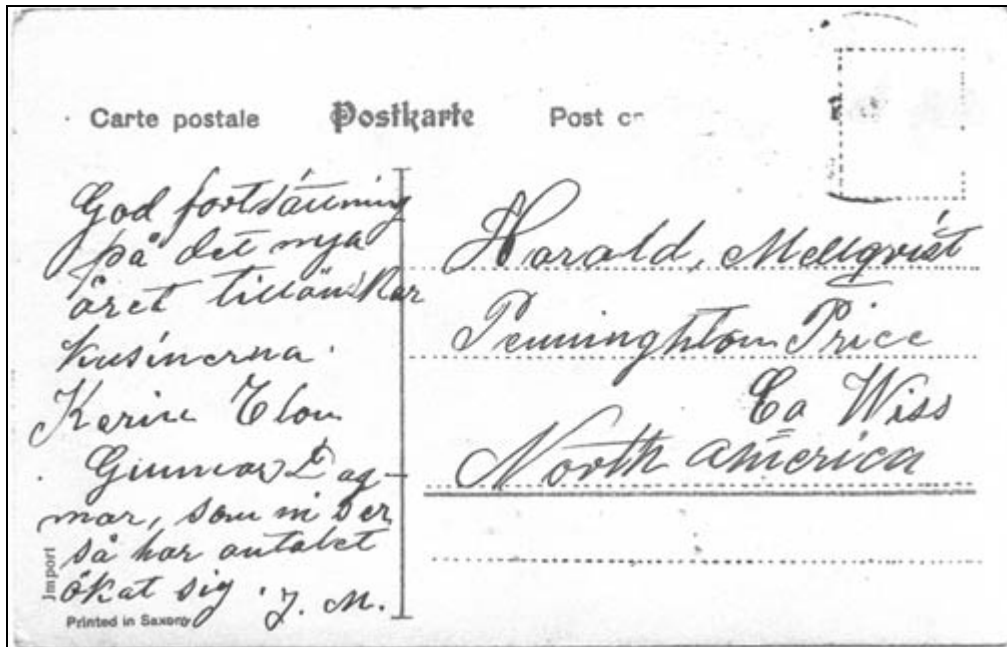 Carte postale Postkarte Post c
God fortsättning
på det nya
året tillönskar
Kusinerna
Karin Elon
Gunnar Dag-
mar, som ni ser
så har antalet
ökat sig. J. M.
Harald, Mellqvist
Penninghton Price
Co Wiss
North america
Import
Printed in Saxony